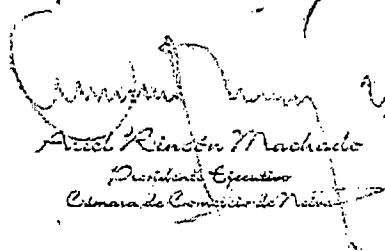 Ariel Rincón Machado
Presidente Ejecutivo
Cámara de Comercio de Neiva